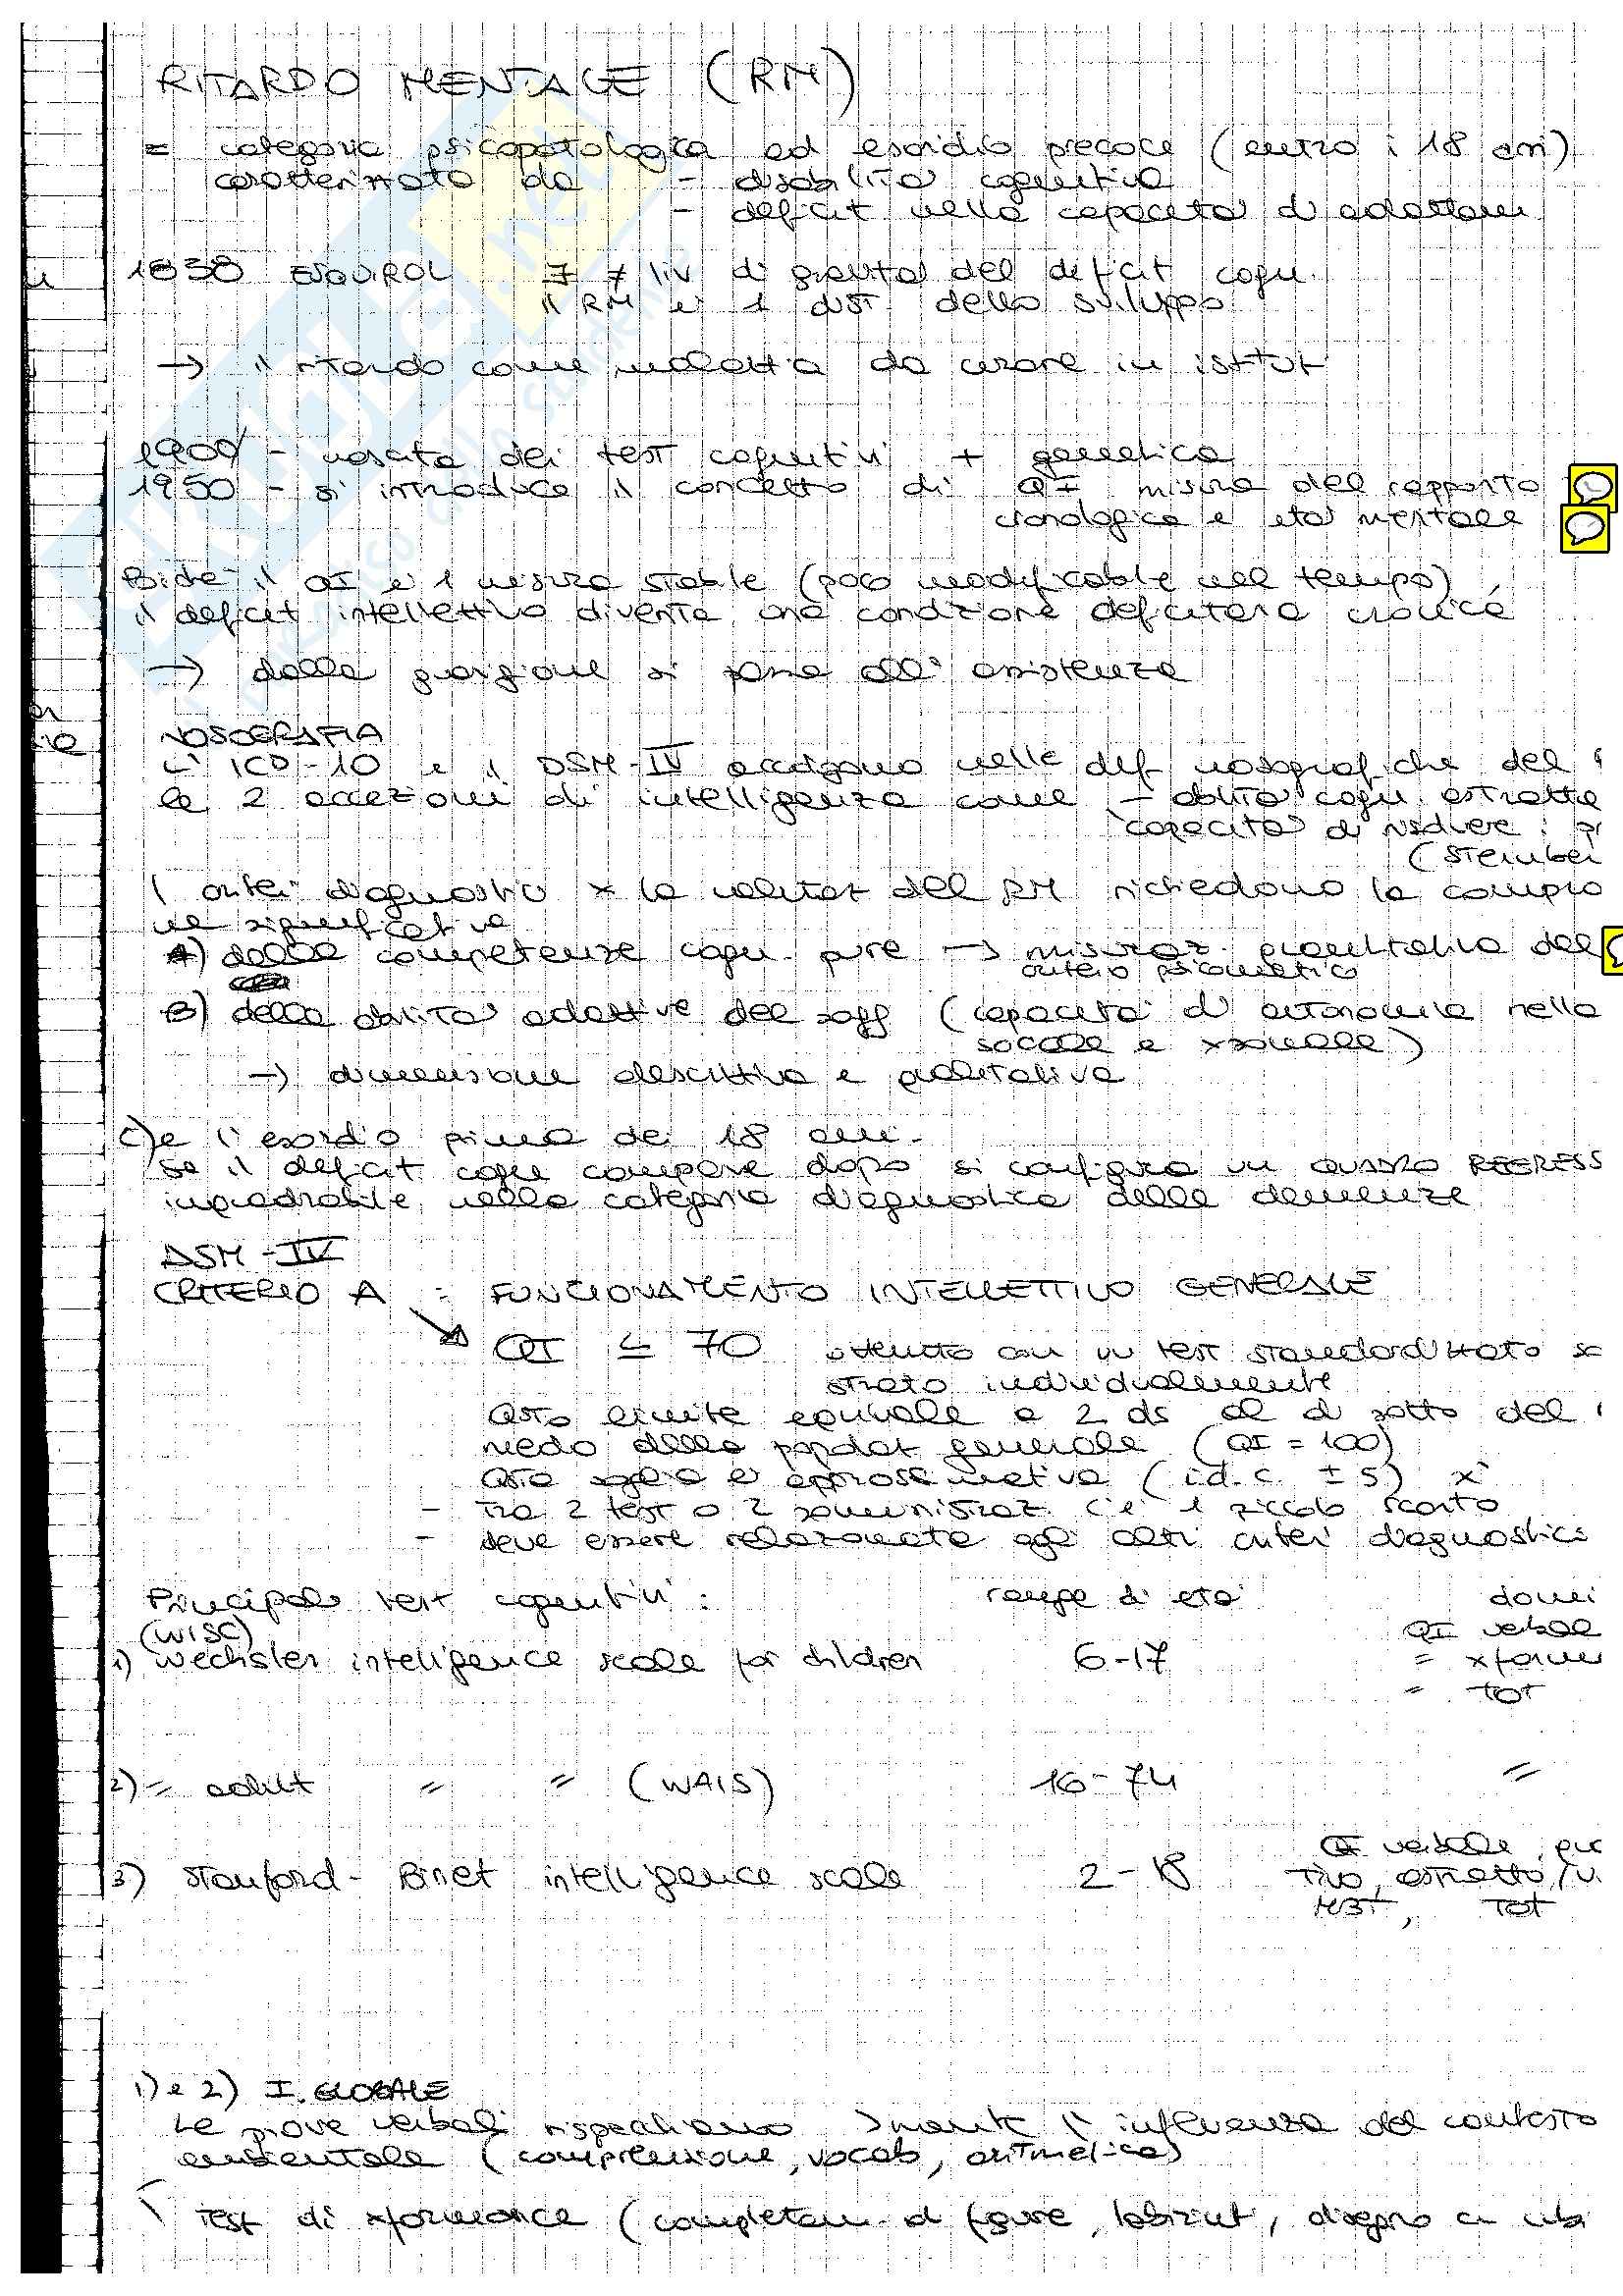 RITARDO MENTALE (RM)
= categoria psicopatologica ad esordio precoce (entro i 18 anni)
caratterizzato da - disabilità cognitiva
- deficit nella capacità di adattam
1838 ESQUIROL 7 ≠ liv di gravità del deficit cogn.
il RM è 1 dist. dello sviluppo
→ il ritardo come malattia da curare in istitut
1900 - nascita dei test cognitivi + genetica
1950 - si introduce il concetto di QI misura del rapporto
cronologica e età mentale
il QI è 1 misura stabile (poco modificabile nel tempo)
il deficit intellettivo diventa una condizione deficitaria cronica
→ dalla guarigione si passa all'assistenza
NOSOGRAFIA
L'ICD-10 e il DSM-IV accolgono nelle def nosografiche del
le 2 accezioni di intelligenza come - abilità cogn. astratte
capacità di risolvere i pr
(Sternber
I criteri diagnostici x la valutaz del RM richiedono la compro
ne significativa
A) delle competenze cogn. pure → misuraz. quantitativa del
criterio psicometrico
B) delle abilità adattive del sogg (capacità di autonomia nella
sociale e xsonale)
→ dimensione descrittiva e qualitativa
C) e l'esordio prima dei 18 anni.
Se il deficit cogn compare dopo si configura un QUADRO REGRESS
inquadrabile nella categoria diagnostica delle demenze
DSM-IV
CRITERIO A : FUNZIONAMENTO INTELLETTIVO GENERALE
QI ≤ 70 ottenuto con un test standardizzato so
strato individualmente
Qsto limite equivale a 2 ds al di sotto del
medo della popolaz generale (QI = 100)
Qsta soglia è approssimativa (i.d.c. ± 5) x'
- tra 2 test o 2 somministraz. c'è 1 piccolo scarto
- deve essere relazionata agli altri criteri diagnostici
Principali test cognitivi: range di età domi
(WISC) QI verbale
1) Wechsler inteligence scale for children 6-17 = xforma
= TOT
2) = adult = = (WAIS) 16-74 =
3) Stanford-Binet intelligence scale 2-18
QI verbale,
tivo, astratto/v.
TOT
1) e 2) I. GLOBALE
Le prove verbali rispecchiano >mente l'influenza del contesto
ambientale (comprensione, vocab, aritmetica)
I test di xformance (completam. di figure, labirint, disegno cn cubi